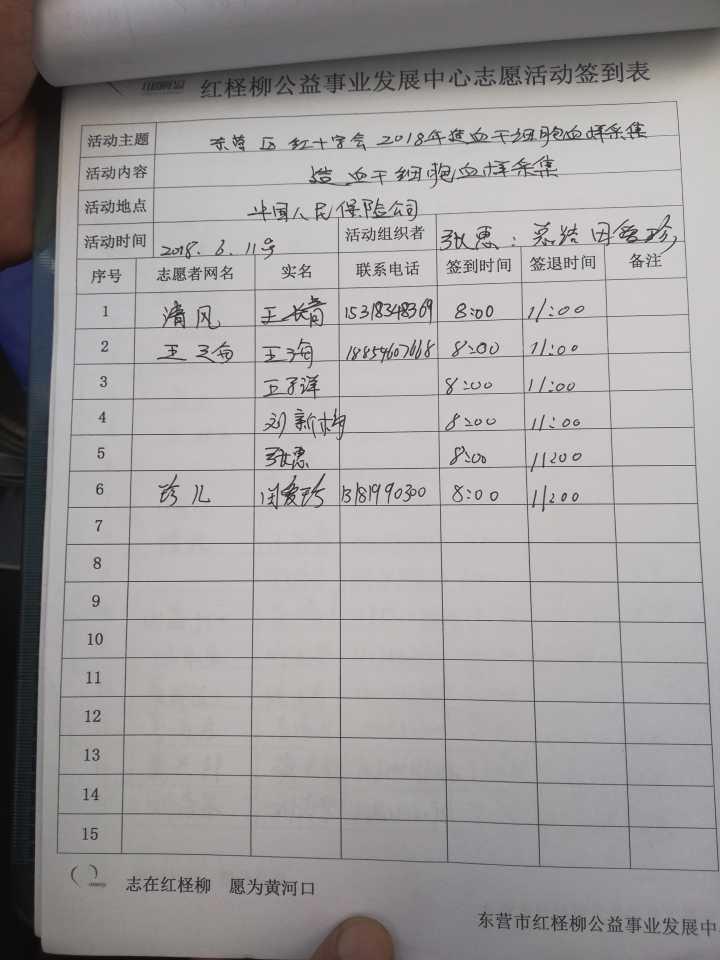 红柽柳公益事业发展中心志愿活动签到表
活动主题 东营区红十字会2018年造血干细胞血样采集
活动内容 造血干细胞血样采集
活动地点 中国人民保险公司
活动时间 2018.6.11号 活动组织者 张惠:
序号 志愿者网名 实名 联系电话 签到时间 签退时间 备注
1 清风 15318348369 8:00 11:00
2 王海 18854607668 8:00 11:00
3 王子洋 8:00 11:00
4 刘新梅 8:00 11:00
5 张惠 8:00 11:00
6 珍儿 闫爱珍 13181990300 8:00 11:00
7
8
9
10
11
12
13
14
15
志在红柽柳 愿为黄河口
东营市红柽柳公益事业发展中